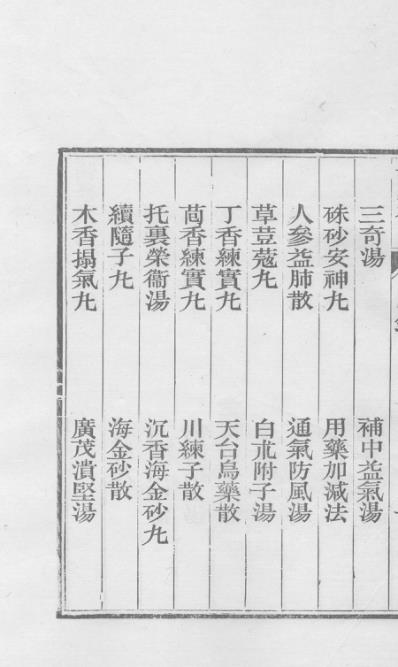 三奇湯　補中益氣湯
硃砂安神九　用藥加減法
人參益肺散　通氣防風湯
草荳蔻九　白朮附子湯
丁香練實九　天台烏藥散
茴香練實九　川練子散
托裏榮衞湯　沉香海金砂九
續隨子九　海金砂散
木香搨氣九　廣茂潰堅湯